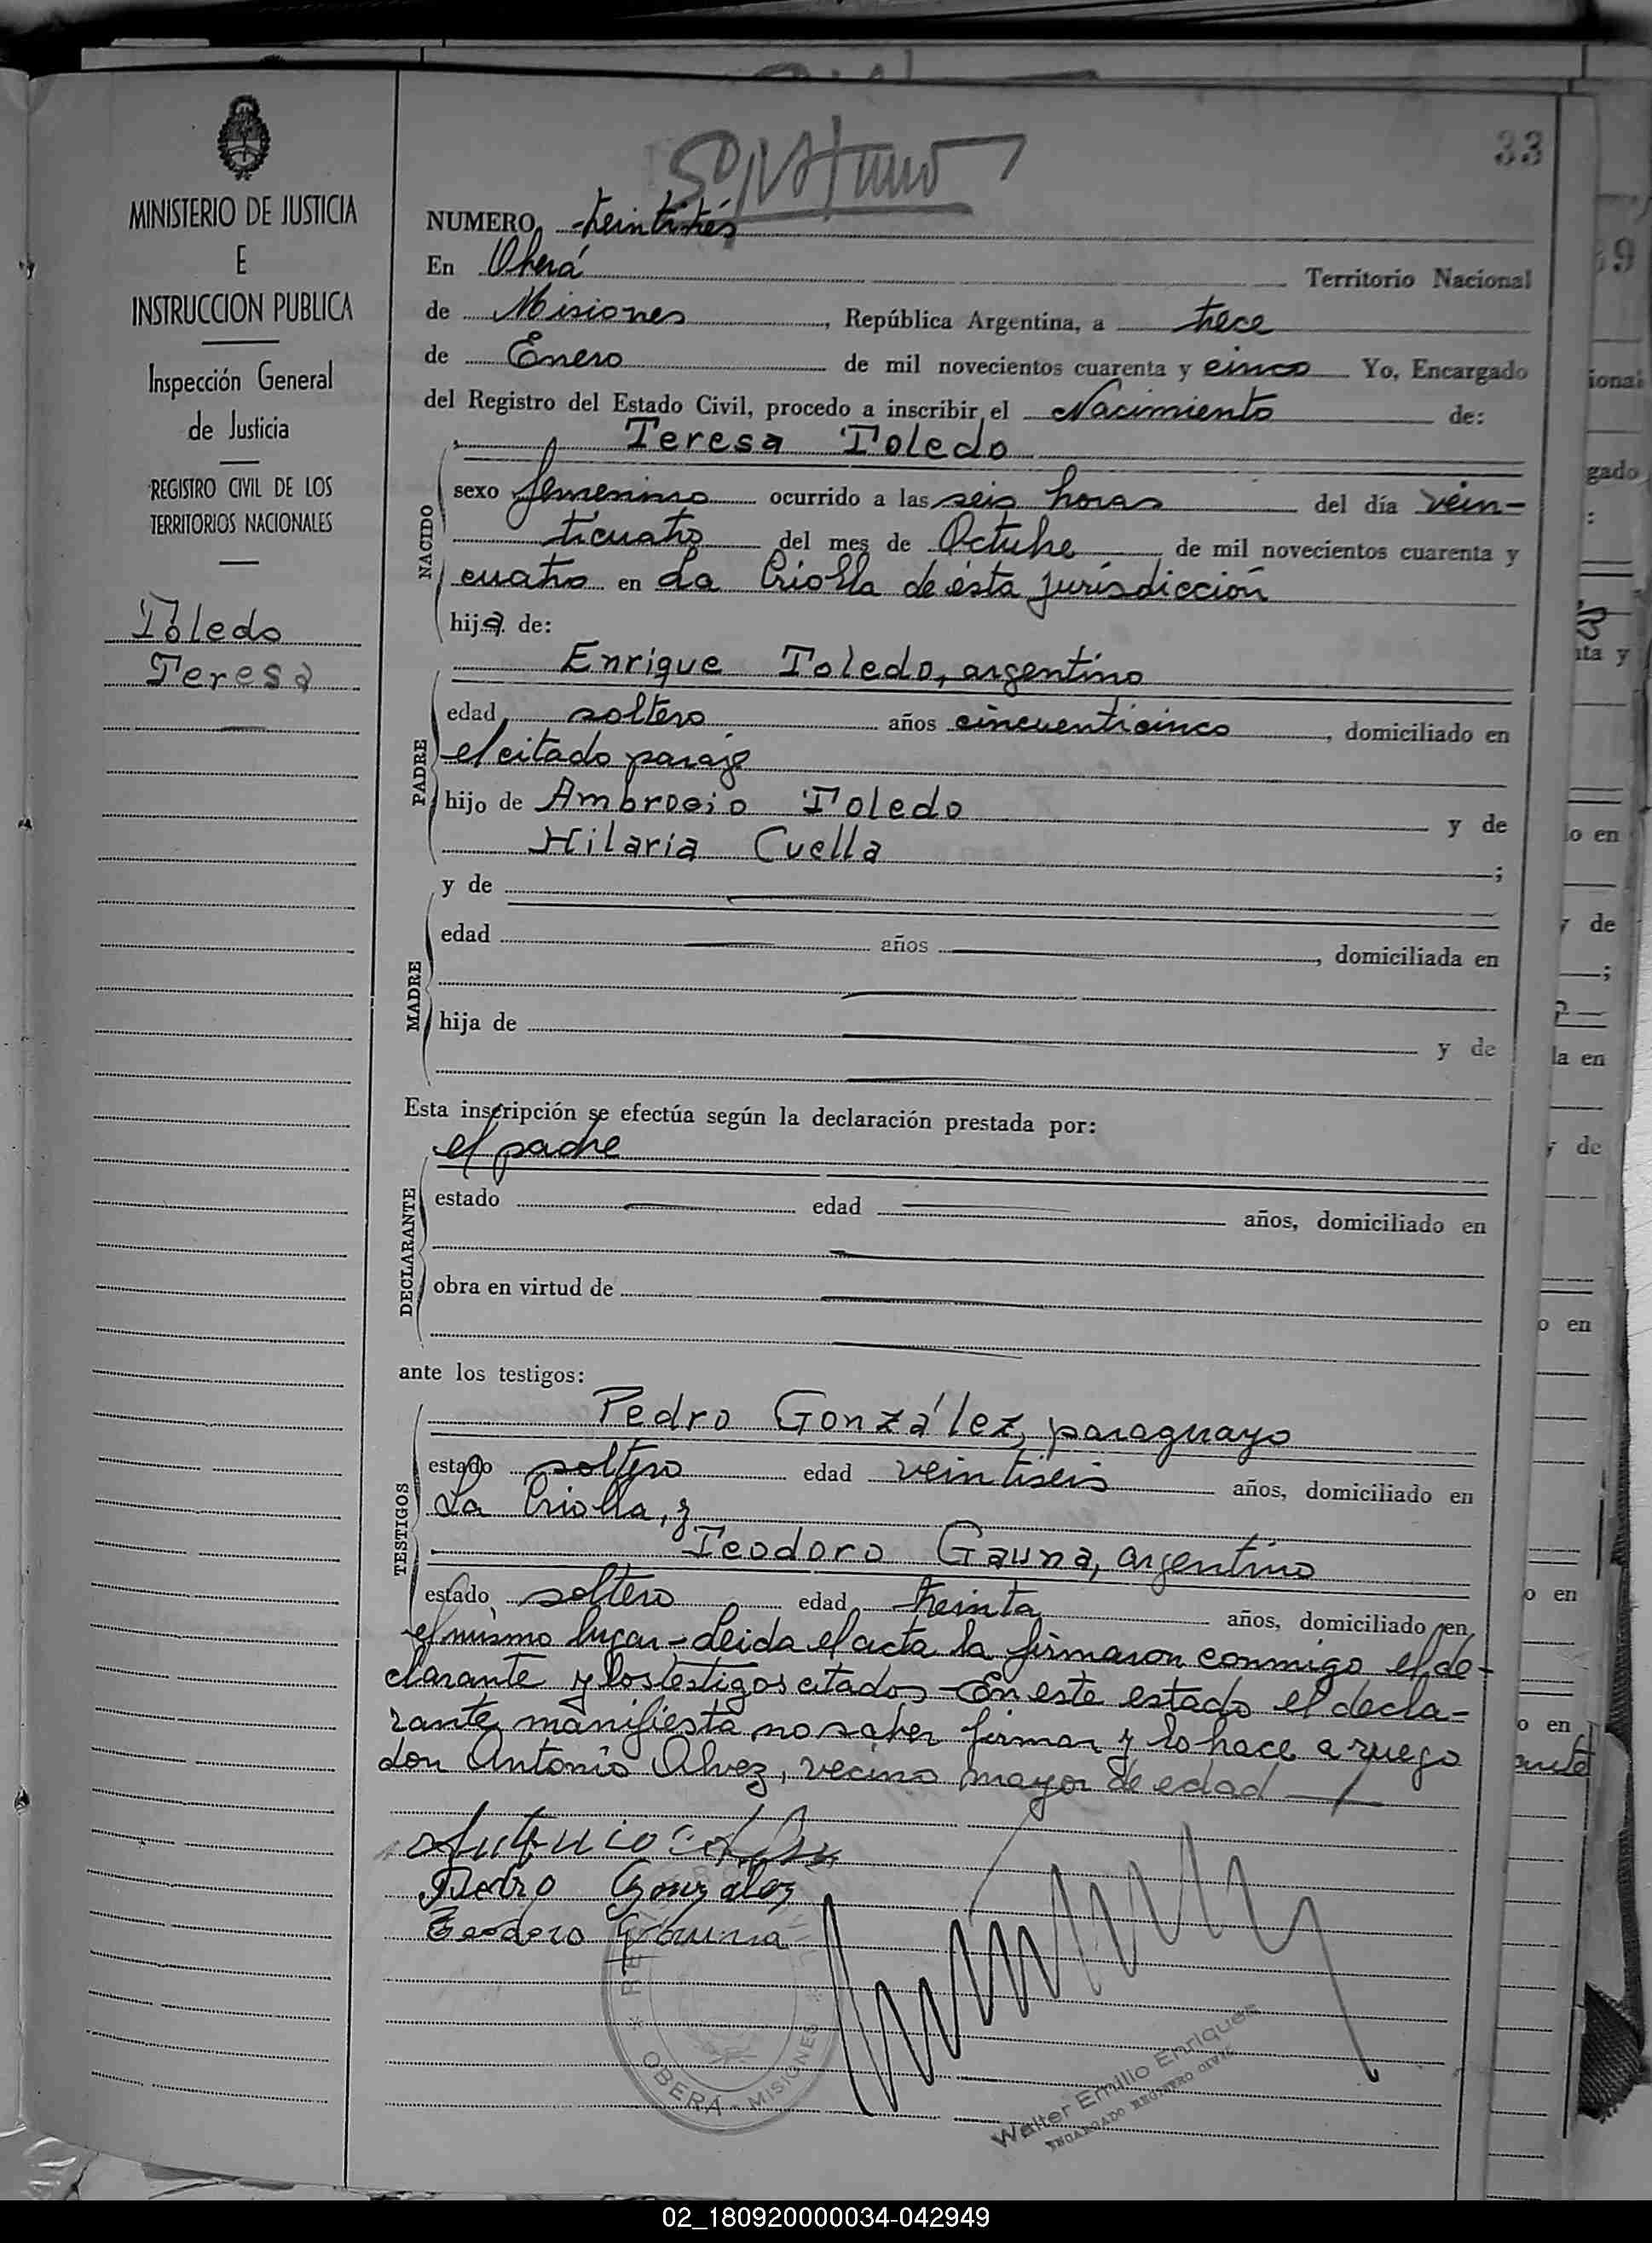 33
MINISTERIO DE JUSTICIA
E
INSTRUCCION PUBLICA
Inspección General
de Justicia
REGISTRO CIVIL DE LOS
TERRITORIOS NACIONALES
Toledo
Teresa
NUMERO treintitrés
En Oberá Territorio Nacional
de Misiones, República Argentina, a trece
de Enero de mil novecientos cuarenta y cinco Yo, Encargado
del Registro del Estado Civil, procedo a inscribir el Nacimiento de:
Teresa Toledo
NACIDO
sexo femenino ocurrido a las seis horas del día vein-
ticuatro del mes de Octubre de mil novecientos cuarenta y
cuatro en La Criolla de ésta jurisdicción
hija de:
Enrique Toledo, argentino
PADRE
edad soltero años cincuenticinco, domiciliado en
el citado paraje
hijo de Ambrosio Toledo y de
Hilaria Cuella ;
y de
MADRE
edad años , domiciliada en
hija de y de
Esta inscripción se efectúa según la declaración prestada por:
el padre
DECLARANTE
estado edad años, domiciliado en
obra en virtud de
ante los testigos:
TESTIGOS
Pedro González, paraguayo
estado soltero edad veintiseis años, domiciliado en
La Criolla, y
Teodoro Gauna, argentino
estado soltero edad treinta años, domiciliado en
el mismo lugar - Leida el acta la firmaron conmigo el de-
clarante y los testigos citados - En este estado el decla-
rante manifiesta no saber firmar y lo hace a ruego
don Antonio Alvez, vecino mayor de edad
Antonio
Pedro Gonzalez
Teodoro Gauna
OBERÁ - MISIONES
Walter Emilio Enriquez
ENCARGADO REGISTRO CIVIL
02_180920000034-042949